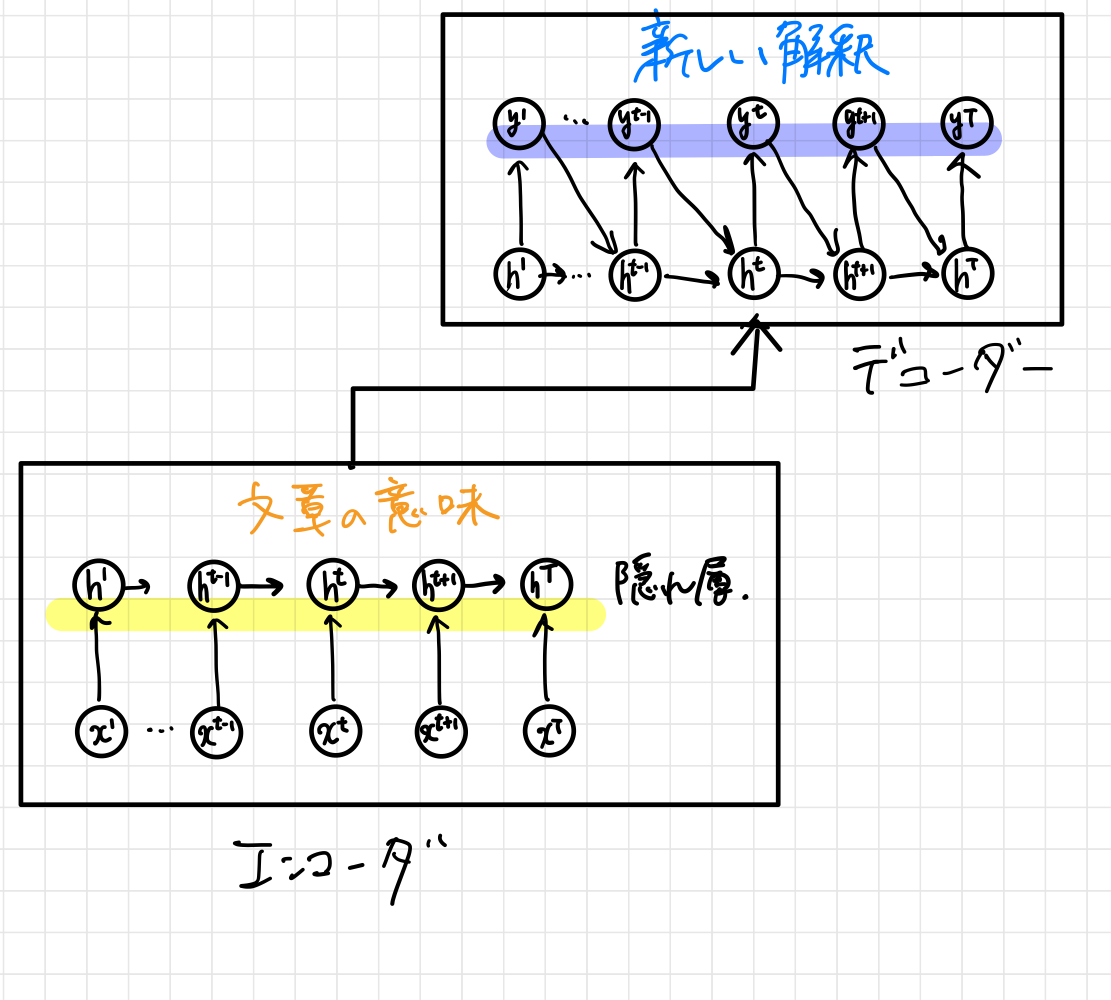 新しい解釈
y¹ … yᵗ⁻¹ yᵗ yᵗ⁺¹ yᵀ
h¹ … hᵗ⁻¹ hᵗ hᵗ⁺¹ hᵀ
デコーダー
文章の意味
h¹ hᵗ⁻¹ hᵗ hᵗ⁺¹ hᵀ 隠れ層.
x¹ … xᵗ⁻¹ xᵗ xᵗ⁺¹ xᵀ
エンコーダ